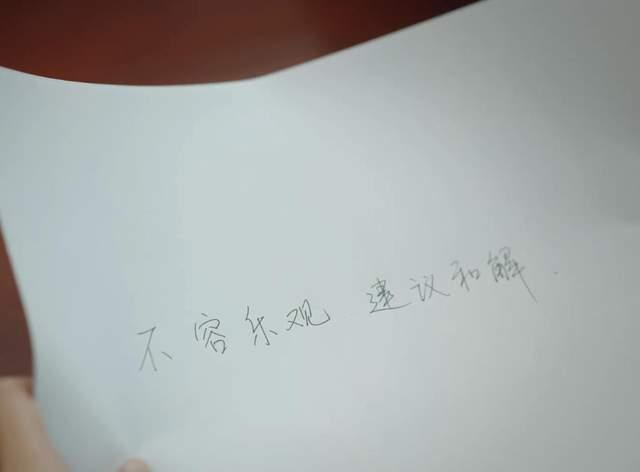 不容乐观 建议和解.